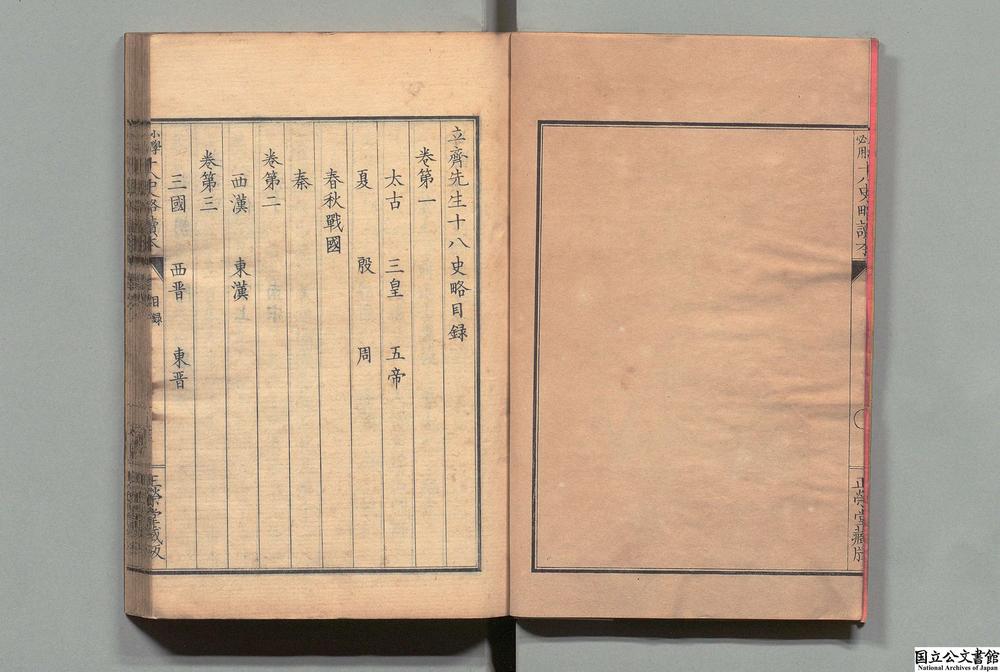 必用 十八史略讀本
正榮堂藏版
立齋先生十八史略目録
卷第一
太古 三皇 五帝
夏 殷 周
春秋戰國
秦
卷第二
西漢 東漢
卷第三
三國 西晋 東晋
小學 十八史略讀本
目録
正榮堂藏版
国立公文書館
National Archives of Japan